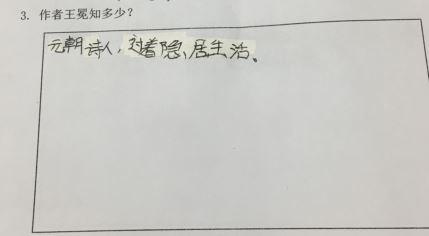 3. 作者王冕知多少？
元朝诗人，过着隐居生活。